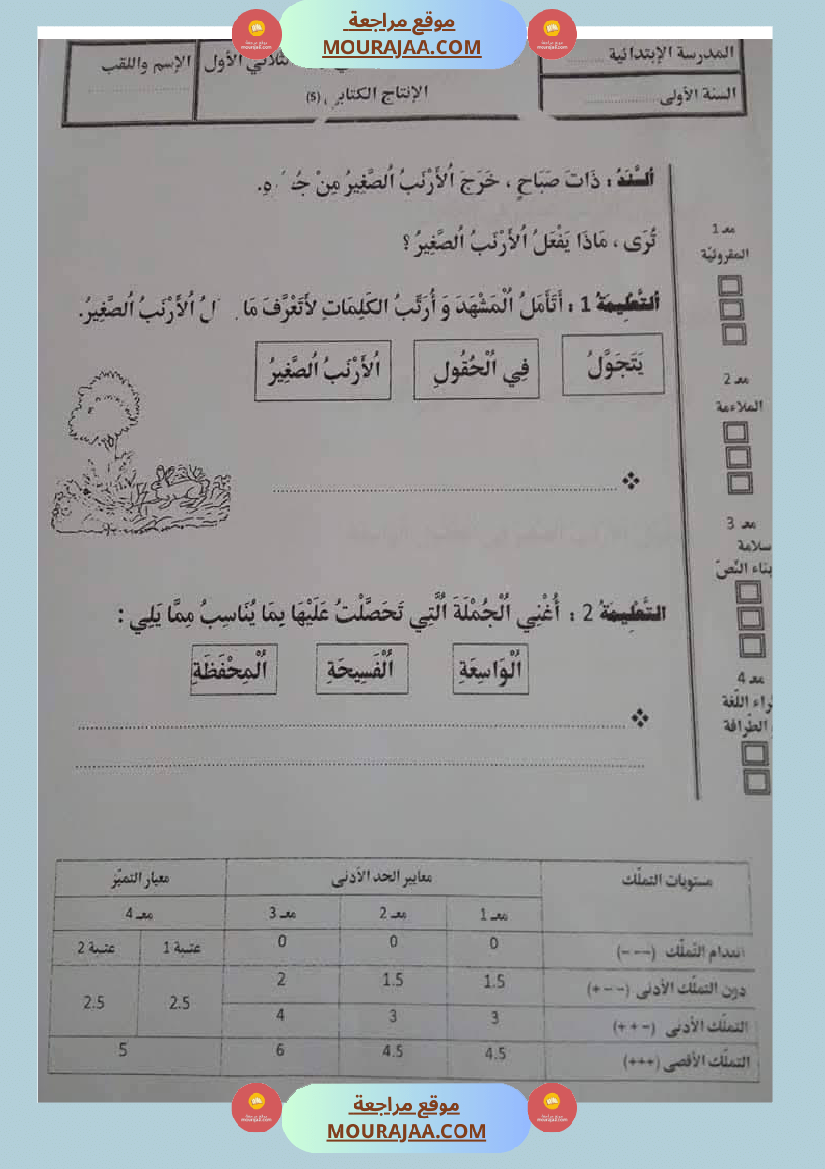 موقع مراجعة
MOURAJAA.COM
المدرسة الإبتدائية ............
السنة الأولى ......................
الثلاثي الأول
الإنتاج الكتابي (5)
الإسم واللقب
..............................
اَلسَّنَدُ : ذَاتَ صَبَاحٍ ، خَرَجَ اُلأَرْنَبُ اُلصَّغِيرُ مِنْ
تُرَى ، مَاذَا يَفْعَلُ اُلأَرْنَبُ اُلصَّغِيرُ ؟
اَلتَّعْلِيمَةُ 1 : أَتَأَمَّلُ اُلْمَشْهَدَ وَ أُرَتِّبُ الكَلِمَاتِ لأَتَعْرَّفَ مَا اُلأَرْنَبُ اُلصَّغِيرُ.
يَتَجَوَّلُ
فِي اُلْحُقُولِ
اُلأَرْنَبُ اُلصَّغِيرُ
التَّعْلِيمَةُ 2 : أُغْنِي اُلْجُمْلَةَ اُلَّتِي تَحَصَّلْتُ عَلَيْهَا بِمَا يُنَاسِبُ مِمَّا يَلِي :
اُلْوَاسِعَةِ
اُلْفَسِيحَةِ
اُلْمِحْفَظَةِ
معـ 1
المقروئيّة
معـ 2
الملاءمة
معـ 3
سلامة
بناء النَّصّ
معـ 4
ـراء اللّغة
الطّرافة
مستويات التملّك
معايير الحد الأدنى
معيار التميّز
معـ 1
معـ 2
معـ 3
معـ 4
انعدام التّملّك (− − −)
0
0
0
عتبية 1
عتبية 2
دون التملّك الأدنى (+ − −)
1.5
1.5
2
2.5
2.5
التملّك الأدنى (+ + −)
3
3
4
التملّك الأقصى (+++)
4.5
4.5
6
5
موقع مراجعة
MOURAJAA.COM